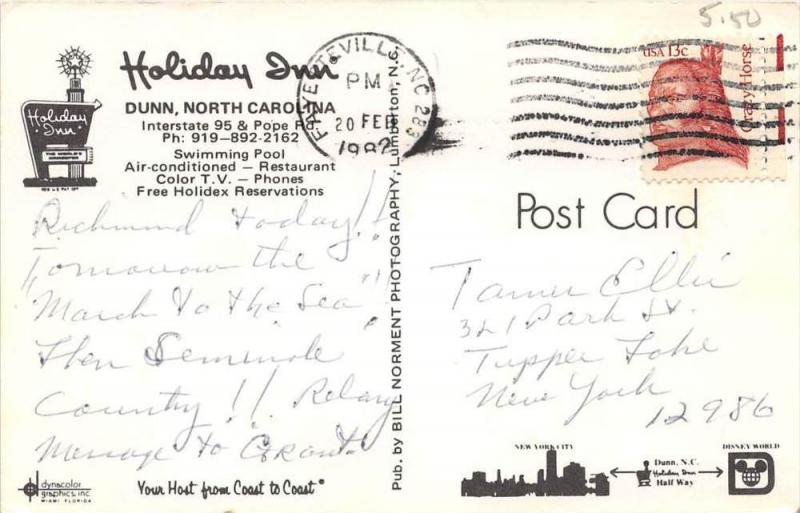 5.50
Holiday Inn®
DUNN, NORTH CAROLINA
Interstate 95 & Pope Rd.
Ph: 919-892-2162
Swimming Pool
Air-conditioned — Restaurant
Color T.V. — Phones
Free Holidex Reservations
Holiday
Inn
FAYETTEVILLE, NC 283
PM
20 FEB
1982
USA 13c
Crazy Horse
Post Card
Richmond today!!
"Tomorrow the
March to the Sea"!!
Then Seminole
County!! Relay
Message to Grant.
Pub. by BILL NORMENT PHOTOGRAPHY, Lumberton, N.C.
Tamer Ellis
321 Park St.
Tupper Lake
New York
12986
dynacolor
graphics, inc.
MIAMI FLORIDA
Your Host from Coast to Coast®
NEW YORK CITY
Dunn, N.C.
Holiday Inn
Half Way
DISNEY WORLD